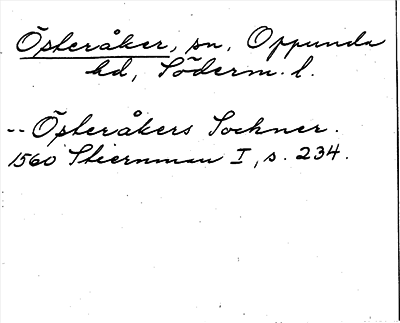 Österåker, sn, Oppunda
hd, Söderm. l.
-- Österåkers Sochner.
1560 Stiernman I, s. 234.